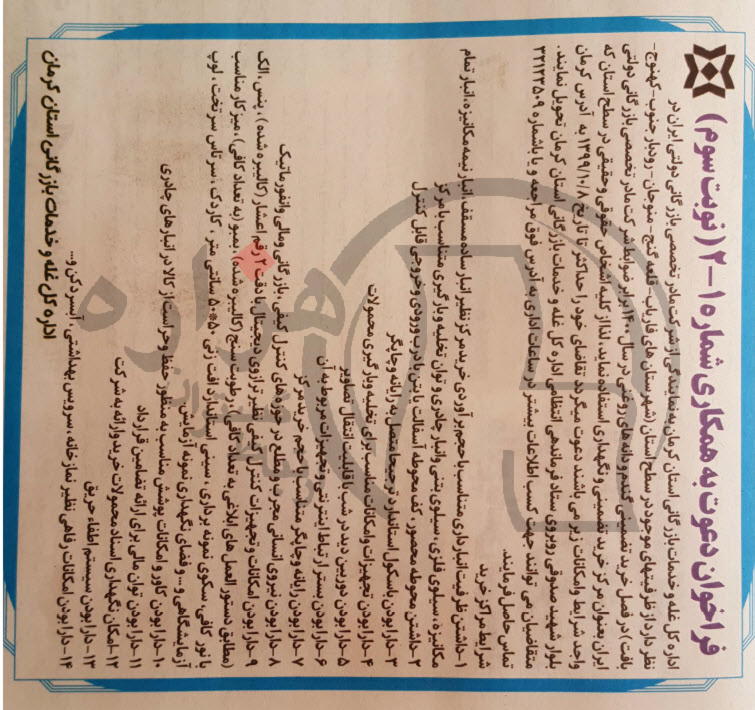 فراخوان دعوت به همکاری شماره ۱-۲ ( نوبت سوم )
اداره کل غله و خدمات بازرگانی استان کرمان به نمایندگی از شرکت مادر تخصصی بازرگانی دولتی ایران در
نظر دارد از ظرفیتهای موجود در سطح استان (شهرستان های فاریاب- قلعه گنج- منوجان- رودبار جنوب-کهنوج-
بافت ) در فصل خرید تضمینی گندم و دانه های روغنی در سال ۱۴۰۰ برابر ضوابط شرکت مادر تخصصی بازرگانی دولتی
ایران بعنوان مرکز خرید تضمینی و نگهداری استفاده نماید، لذا از کلیه اشخاص حقوقی وحقیقی در سطح استان که
واجد شرایط وامکانات زیر می باشند دعوت میگردد تقاضای خود را حداکثر تا تاریخ ۱۳۹۹/۱۰/۸ به آدرس کرمان
بلوار شهید صدوقی روبروی ستاد فرماندهی انتظامی اداره کل غله و خدمات بازرگانی استان کرمان تحویل نمایند .
متقاضیان می توانند جهت کسب اطلاعات بیشتر در ساعات اداری به آدرس فوق مراجعه و یا باشماره ۳۲۱۲۳۵۰۹
تماس حاصل فرمایند.
شرایط مراکز خرید
۱-داشتن ظرفیت انبارداری متناسب با حجم برآوردی خرید مرکز نظیر انبار ساده مسقف، انبار نیمه مکانیزه، انبار تمام
مکانیزه ، سیلوی فلزی ، سیلوی بتنی وانبار چادری و توان تخلیه و بارگیری متناسب با مرکز
۲-داشتن محوطه محصور ، کف محوطه آسفالت یا بتن با درب ورودی وخروجی قابل کنترل
۳-دارا بودن باسکول استاندارد ترجیحا متصل به رایانه وچاپگر
۴-دارا بودن تجهیزات وامکانات مناسب برای تخلیه وبارگیری محمولات
۵-دارا بودن دوربین دید در شب با قابلیت انتقال تصاویر
۶-دارا بودن بستر ارتباط اینترنتی وتجهیزات مربوط به آن
۷-دارا بودن رایانه وچاپگر متناسب با حجم خرید مرکز
۸-دارا بودن نیروی انسانی مجرب و مطلع در حوزه های کنترل کیفی ، بازرگانی ومالی وانفورماتیک
۹-دارا بودن امکانات و تجهیزات کنترل کیفی نظیر ترازوی دیجیتال با دقت ۲ رقم اعشار (کالیبره شده ) ، پنس ، الک
(مطابق دستور العمل های ابلاغی به تعداد کافی) ، رطوبت سنج (کالیبره شده) ، بمبو (به تعداد کافی) ، میز کار مناسب
با نور کافی، سکوی نمونه برداری ، سینی استاندارد افت زنی ۵۰*۵۰ سانتی متر ، کاردک ، سرتاس سرتخت ، لوپ
آزمایشگاهی و ... و فضای نگهداری نمونه آزمایش.
۱۰-دارا بودن کاور و امکانات پوشش مناسب به منظور حفظ وحراست از کالا در انبارهای چادری
۱۱-دارا بودن توان مالی برای ارائه تضامین قرارداد
۱۲-امکان نگهداری اسناد محمولات خرید وارائه به شرکت
۱۳-دارا بودن سیستم اطفاء حریق
۱۴-دارا بودن امکانات رفاهی نظیر نمازخانه ، سرویس بهداشتی ، آبسردکن و...
اداره کل غله و خدمات بازرگانی استان کرمان